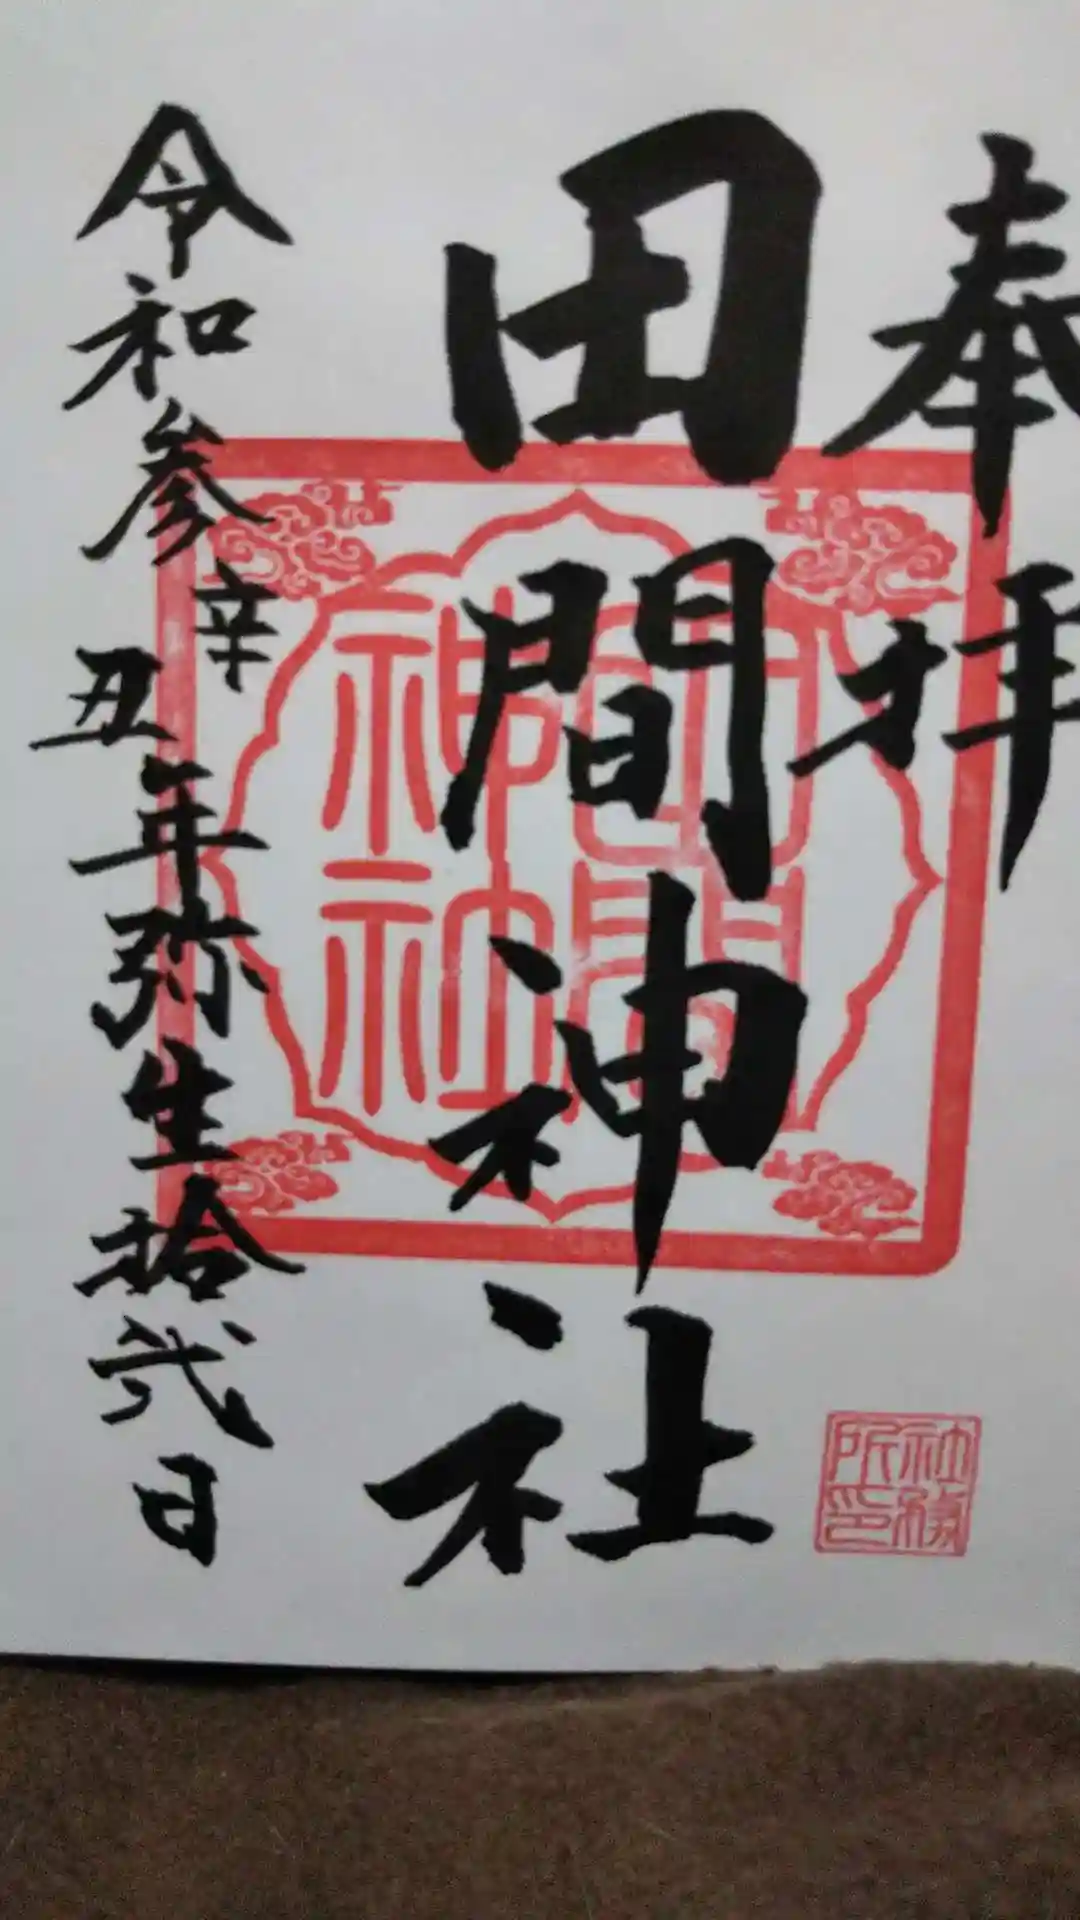 奉拝
田間神社
令和参辛丑年弥生拾弐日
田間
神社
社務
所印